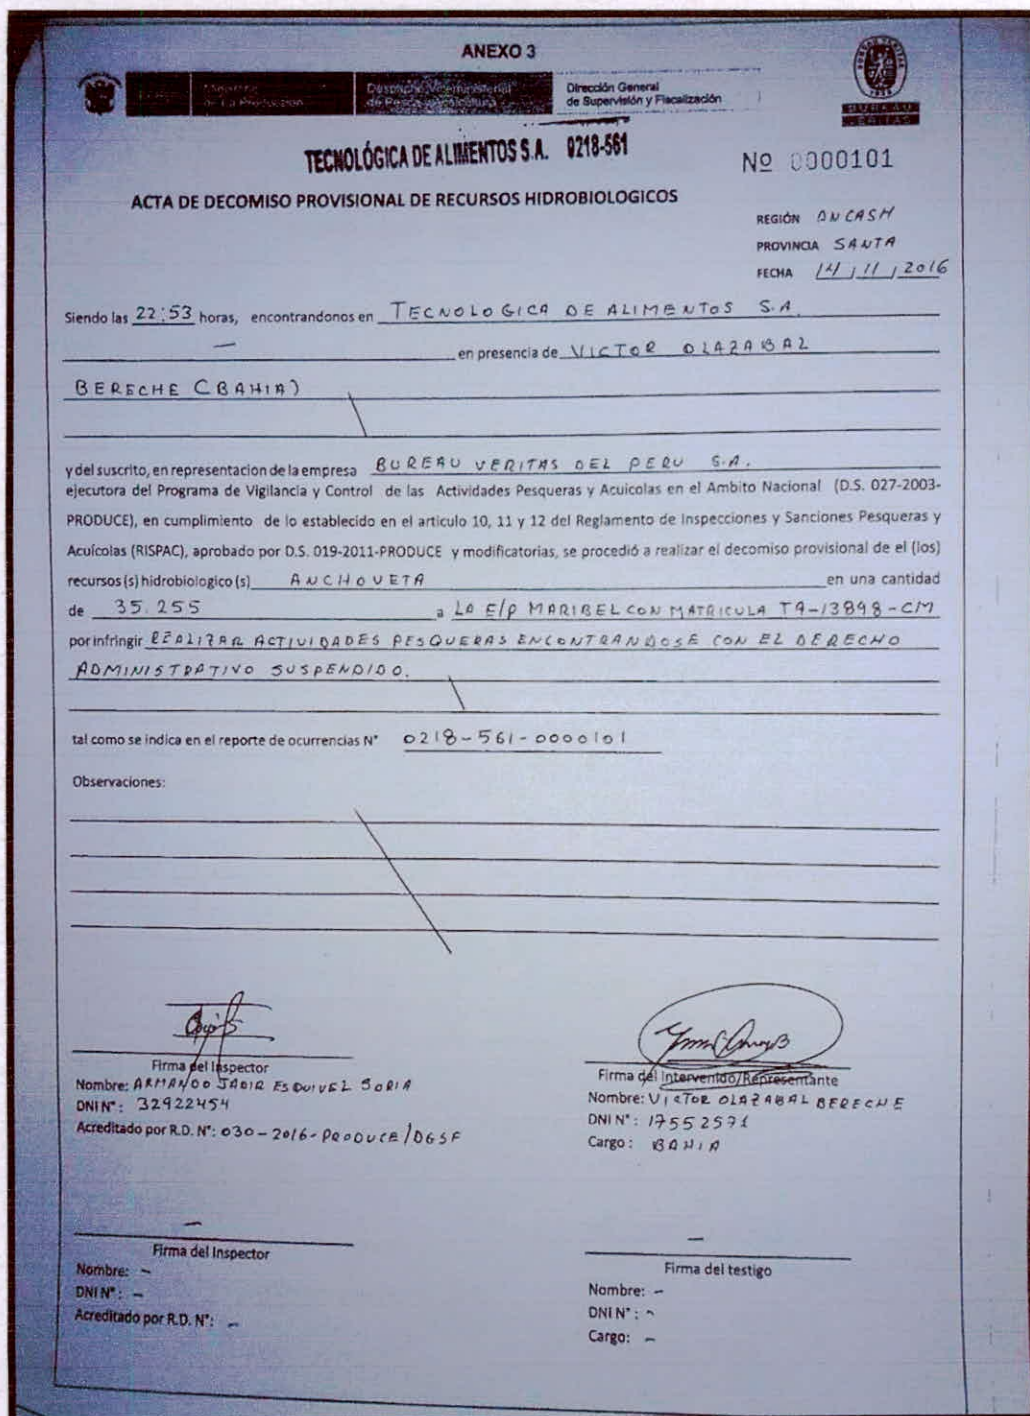 ANEXO 3
Ministerio de la Producción
Despacho Viceministerial de Pesca
Dirección General
de Supervisión y Fiscalización
BUREAU
VERITAS
TECNOLÓGICA DE ALIMENTOS S.A. 0218-561
Nº 0000101
ACTA DE DECOMISO PROVISIONAL DE RECURSOS HIDROBIOLOGICOS
REGIÓN ANCASH
PROVINCIA SANTA
FECHA 14/11/2016
Siendo las 22:53 horas, encontrandonos en TECNOLOGICA DE ALIMENTOS S.A.
— en presencia de VICTOR OLAZABAL
BERECHE (BAHIA)
y del suscrito, en representacion de la empresa BUREAU VERITAS DEL PERU S.A.
ejecutora del Programa de Vigilancia y Control de las Actividades Pesqueras y Acuicolas en el Ambito Nacional (D.S. 027-2003-
PRODUCE), en cumplimiento de lo establecido en el articulo 10, 11 y 12 del Reglamento de Inspecciones y Sanciones Pesqueras y
Acuícolas (RISPAC), aprobado por D.S. 019-2011-PRODUCE y modificatorias, se procedió a realizar el decomiso provisional de el (los)
recursos(s) hidrobiologico(s) ANCHOVETA en una cantidad
de 35.255 a LA E/P MARIBEL CON MATRICULA TA-13898-CM
por infringir REALIZAR ACTIVIDADES PESQUERAS ENCONTRANDOSE CON EL DERECHO
ADMINISTRATIVO SUSPENDIDO.
tal como se indica en el reporte de ocurrencias N° 0218-561-0000101
Observaciones:
Firma del Inspector
Nombre: ARMANDO JADIR ESQUIVEL SORIA
DNI N°: 32922454
Acreditado por R.D. N°: 030-2016-PRODUCE/DGSF
Firma del Intervenido/Representante
Nombre: VICTOR OLAZABAL BERECHE
DNI N°: 17552571
Cargo: BAHIA
—
Firma del Inspector
Nombre: –
DNI N°: –
Acreditado por R.D. N°: –
—
Firma del testigo
Nombre: –
DNI N°: –
Cargo: –